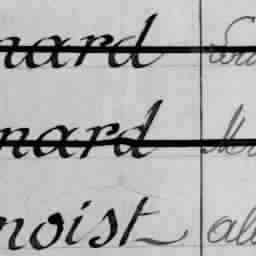 nard
nard
noist al